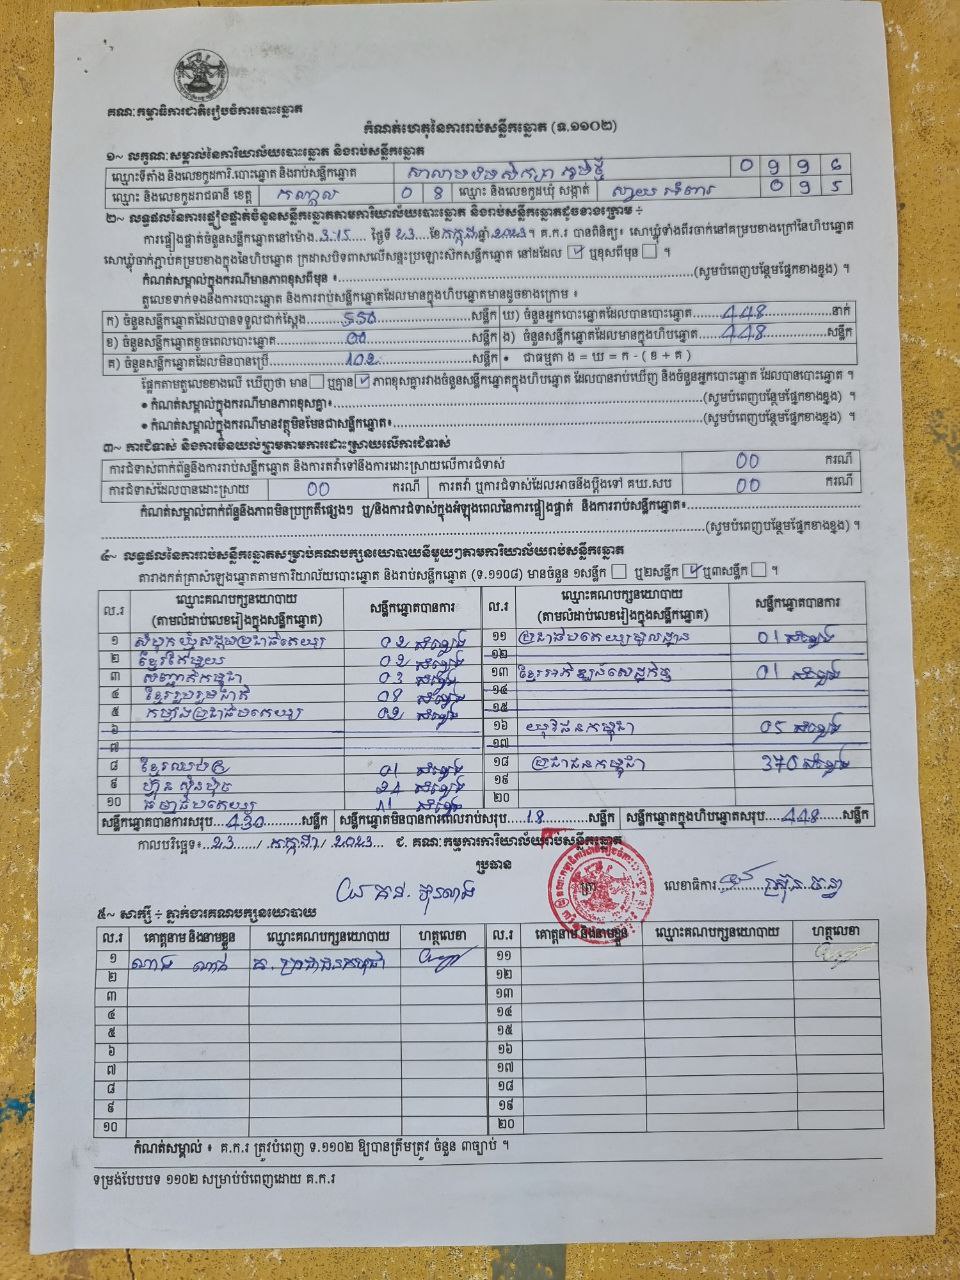 គណៈកម្មាធិការជាតិរៀបចំការបោះឆ្នោត
កំណត់ហេតុនៃការរាប់សន្លឹកឆ្នោត (ទ.១១០២)
១~ លក្ខណៈសម្គាល់នៃការិយាល័យបោះឆ្នោត និងរាប់សន្លឹកឆ្នោត
ឈ្មោះទីតាំង និងលេខកូដការិ.បោះឆ្នោត និងរាប់សន្លឹកឆ្នោត សាលាបឋមសិក្សា ភូមិថ្មី 0 9 9 6
ឈ្មោះ និងលេខកូដរាជធានី ខេត្ត កណ្តាល 0 8 ឈ្មោះ និងលេខកូដឃុំ សង្កាត់ ស្វាយ 0 9 5
២~ លទ្ធផលនៃការផ្ទៀងផ្ទាត់ចំនួនសន្លឹកឆ្នោតតាមការិយាល័យបោះឆ្នោត និងរាប់សន្លឹកឆ្នោតដូចខាងក្រោម ÷
ការផ្ទៀងផ្ទាត់ចំនួនសន្លឹកឆ្នោតនៅម៉ោង 3:15 ថ្ងៃទី 23 ខែ កក្កដា ឆ្នាំ 2023។ គ.ក.រ បានពិនិត្យ៖ សោឃ្លុំទាំងពីរចាក់នៅគម្របខាងក្រៅនៃហិបឆ្នោត
សោឃ្លុំចាក់ភ្ជាប់គម្របខាងក្នុងនៃហិបឆ្នោត ក្រដាសបិទពាសលើសន្ទះប្រឡោះស៊កសន្លឹកឆ្នោត នៅដដែល ☑ ឬខុសពីមុន ☐ ។
កំណត់សម្គាល់ក្នុងករណីមានភាពខុសពីមុន ៖ (សូមបំពេញបន្ថែមផ្នែកខាងខ្នង) ។
តួលេខទាក់ទងនឹងការបោះឆ្នោត និងការរាប់សន្លឹកឆ្នោតដែលមានក្នុងហិបឆ្នោតមានដូចខាងក្រោម ៖
ក) ចំនួនសន្លឹកឆ្នោតដែលបានទទួលជាក់ស្តែង 550 សន្លឹក ឃ) ចំនួនអ្នកបោះឆ្នោតដែលបានបោះឆ្នោត 448 នាក់
ខ) ចំនួនសន្លឹកឆ្នោតខូចពេលបោះឆ្នោត 00 សន្លឹក ង) ចំនួនសន្លឹកឆ្នោតដែលមានក្នុងហិបឆ្នោត 448 សន្លឹក
គ) ចំនួនសន្លឹកឆ្នោតដែលមិនបានប្រើ 102 សន្លឹក • ជាធម្មតា ង = ឃ = ក - ( ខ + គ )
ផ្អែកតាមតួលេខខាងលើ ឃើញថា មាន ☐ ឬគ្មាន ☑ ភាពខុសគ្នារវាងចំនួនសន្លឹកឆ្នោតក្នុងហិបឆ្នោត ដែលបានរាប់ឃើញ និងចំនួនអ្នកបោះឆ្នោត ដែលបានបោះឆ្នោត ។
• កំណត់សម្គាល់ក្នុងករណីមានភាពខុសគ្នា៖ (សូមបំពេញបន្ថែមផ្នែកខាងខ្នង) ។
• កំណត់សម្គាល់ក្នុងករណីមានវត្ថុមិនមែនជាសន្លឹកឆ្នោត៖ (សូមបំពេញបន្ថែមផ្នែកខាងខ្នង) ។
៣~ ការជំទាស់ និងការមិនយល់ព្រមតាមការដោះស្រាយលើការជំទាស់
ការជំទាស់ពាក់ព័ន្ធនឹងការរាប់សន្លឹកឆ្នោត និងការតវ៉ាទៅនឹងការដោះស្រាយលើការជំទាស់ 00 ករណី
ការជំទាស់ដែលបានដោះស្រាយ 00 ករណី ការតវ៉ា ឬការជំទាស់ដែលអាចនឹងប្តឹងទៅ គឃ.សប 00 ករណី
កំណត់សម្គាល់ពាក់ព័ន្ធនឹងភាពមិនប្រក្រតីផ្សេងៗ ឬ/និងការជំទាស់ក្នុងអំឡុងពេលនៃការផ្ទៀងផ្ទាត់ និងការរាប់សន្លឹកឆ្នោត៖
(សូមបំពេញបន្ថែមផ្នែកខាងខ្នង) ។
៤~ លទ្ធផលនៃការរាប់សន្លឹកឆ្នោតសម្រាប់គណបក្សនយោបាយនីមួយៗតាមការិយាល័យរាប់សន្លឹកឆ្នោត
តារាងកត់ត្រាសំឡេងឆ្នោតតាមការិយាល័យបោះឆ្នោត និងរាប់សន្លឹកឆ្នោត (ទ.១១០៨) មានចំនួន ១សន្លឹក ☐ ឬ២សន្លឹក ☑ ឬ៣សន្លឹក ☐ ។
ល.រ ឈ្មោះគណបក្សនយោបាយ (តាមលំដាប់លេខរៀងក្នុងសន្លឹកឆ្នោត) សន្លឹកឆ្នោតបានការ ល.រ ឈ្មោះគណបក្សនយោបាយ (តាមលំដាប់លេខរៀងក្នុងសន្លឹកឆ្នោត) សន្លឹកឆ្នោតបានការ
១ សំបុកឃ្មុំសង្គមប្រជាធិបតេយ្យ 02 សំឡេង ១១ ប្រជាធិបតេយ្យមូលដ្ឋាន 01 សំឡេង
២ ខ្មែរតែមួយ 02 សំឡេង ១២
៣ សញ្ជាតិកម្ពុជា 03 សំឡេង ១៣ ខ្មែរអភិវឌ្ឍន៍សេដ្ឋកិច្ច 01 សំឡេង
៤ ខ្មែររួបរួមជាតិ 08 សំឡេង ១៤
៥ កម្លាំងប្រជាធិបតេយ្យ 02 សំឡេង ១៥
៦ ១៦ យុវជនកម្ពុជា 05 សំឡេង
៧ ១៧
៨ ខ្មែរឈប់ក្រ 01 សំឡេង ១៨ ប្រជាជនកម្ពុជា 370 សំឡេង
៩ ហ៊្វុនស៊ិនប៉ិច 24 សំឡេង ១៩
១០ ធម្មាធិបតេយ្យ 11 សំឡេង ២០
សន្លឹកឆ្នោតបានការសរុប 430 សន្លឹក សន្លឹកឆ្នោតមិនបានការពេលរាប់សរុប 18 សន្លឹក សន្លឹកឆ្នោតក្នុងហិបឆ្នោតសរុប 448 សន្លឹក
កាលបរិច្ឆេទ៖ 23 / កក្កដា / 2023 ជ. គណៈកម្មការការិយាល័យរាប់សន្លឹកឆ្នោត
ប្រធាន
លេខាធិការ
៥~ សាក្សី ÷ ភ្នាក់ងារគណបក្សនយោបាយ
ល.រ គោត្តនាម និងនាមខ្លួន ឈ្មោះគណបក្សនយោបាយ ហត្ថលេខា ល.រ គោត្តនាម និងនាមខ្លួន ឈ្មោះគណបក្សនយោបាយ ហត្ថលេខា
១ គ. ប្រជាជនកម្ពុជា ១១
២ ១២
៣ ១៣
៤ ១៤
៥ ១៥
៦ ១៦
៧ ១៧
៨ ១៨
៩ ១៩
១០ ២០
កំណត់សម្គាល់ ៖ គ.ក.រ ត្រូវបំពេញ ទ.១១០២ ឱ្យបានត្រឹមត្រូវ ចំនួន ៣ច្បាប់ ។
ទម្រង់បែបបទ ១១០២ សម្រាប់បំពេញដោយ គ.ក.រ